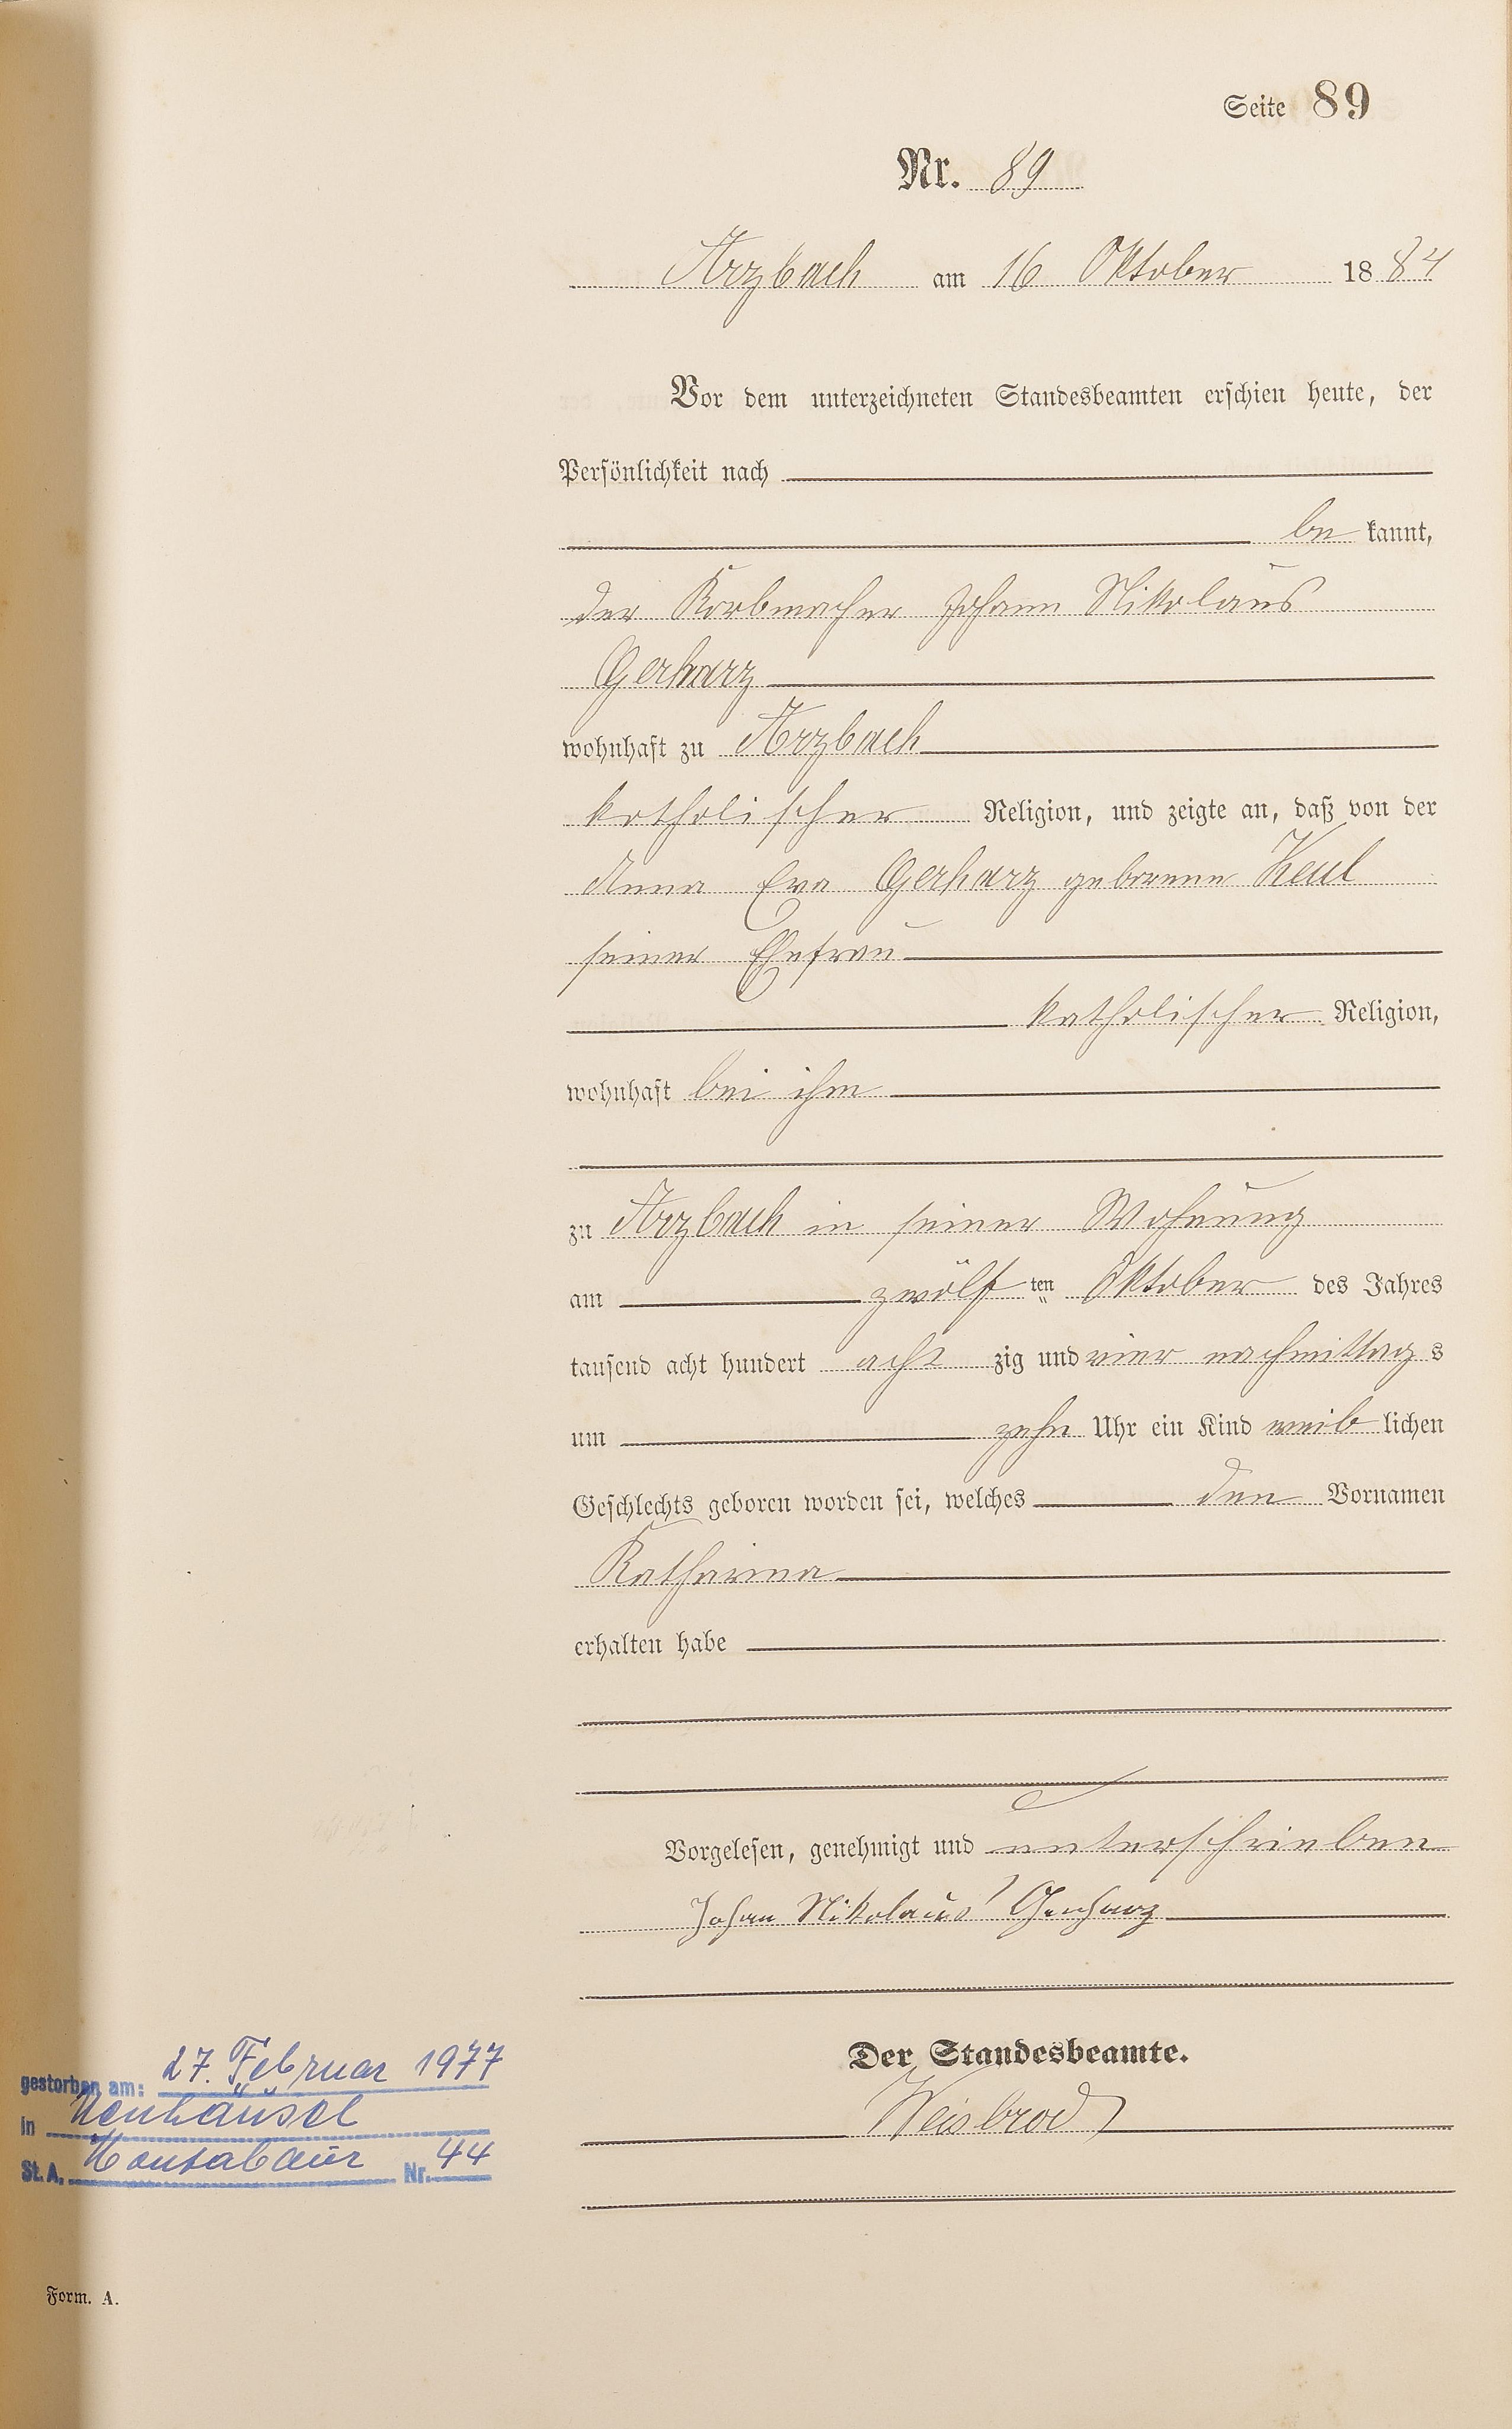 Seite 89
Nr. 89
Arzbach am 16 Oktober 1884
Vor dem unterzeichneten Standesbeamten erschien heute, der
Persönlichkeit nach
be kannt,
der Korbmacher Johann Nikolaus
Gerharz
wohnhaft zu Arzbach
katholischer Religion, und zeigte an, daß von der
Anna Eva Gerharz geborenen Keul
seiner Ehefrau
katholischer Religion,
wohnhaft bei ihm
zu Arzbach in seiner Wohnung
am zwölf ten Oktober des Jahres
tausend acht hundert acht zig und vier nachmittag s
um zehn Uhr ein Kind weib lichen
Geschlechts geboren worden sei, welches den Vornamen
Katharina
erhalten habe
Vorgelesen, genehmigt und unterschrieben
Johan Nikolaus Gerharz
Der Standesbeamte.
Weisbrod
gestorben am: 27. Februar 1977
in Neuhäusel
St. A. Montabaur Nr. 44
Form. A.